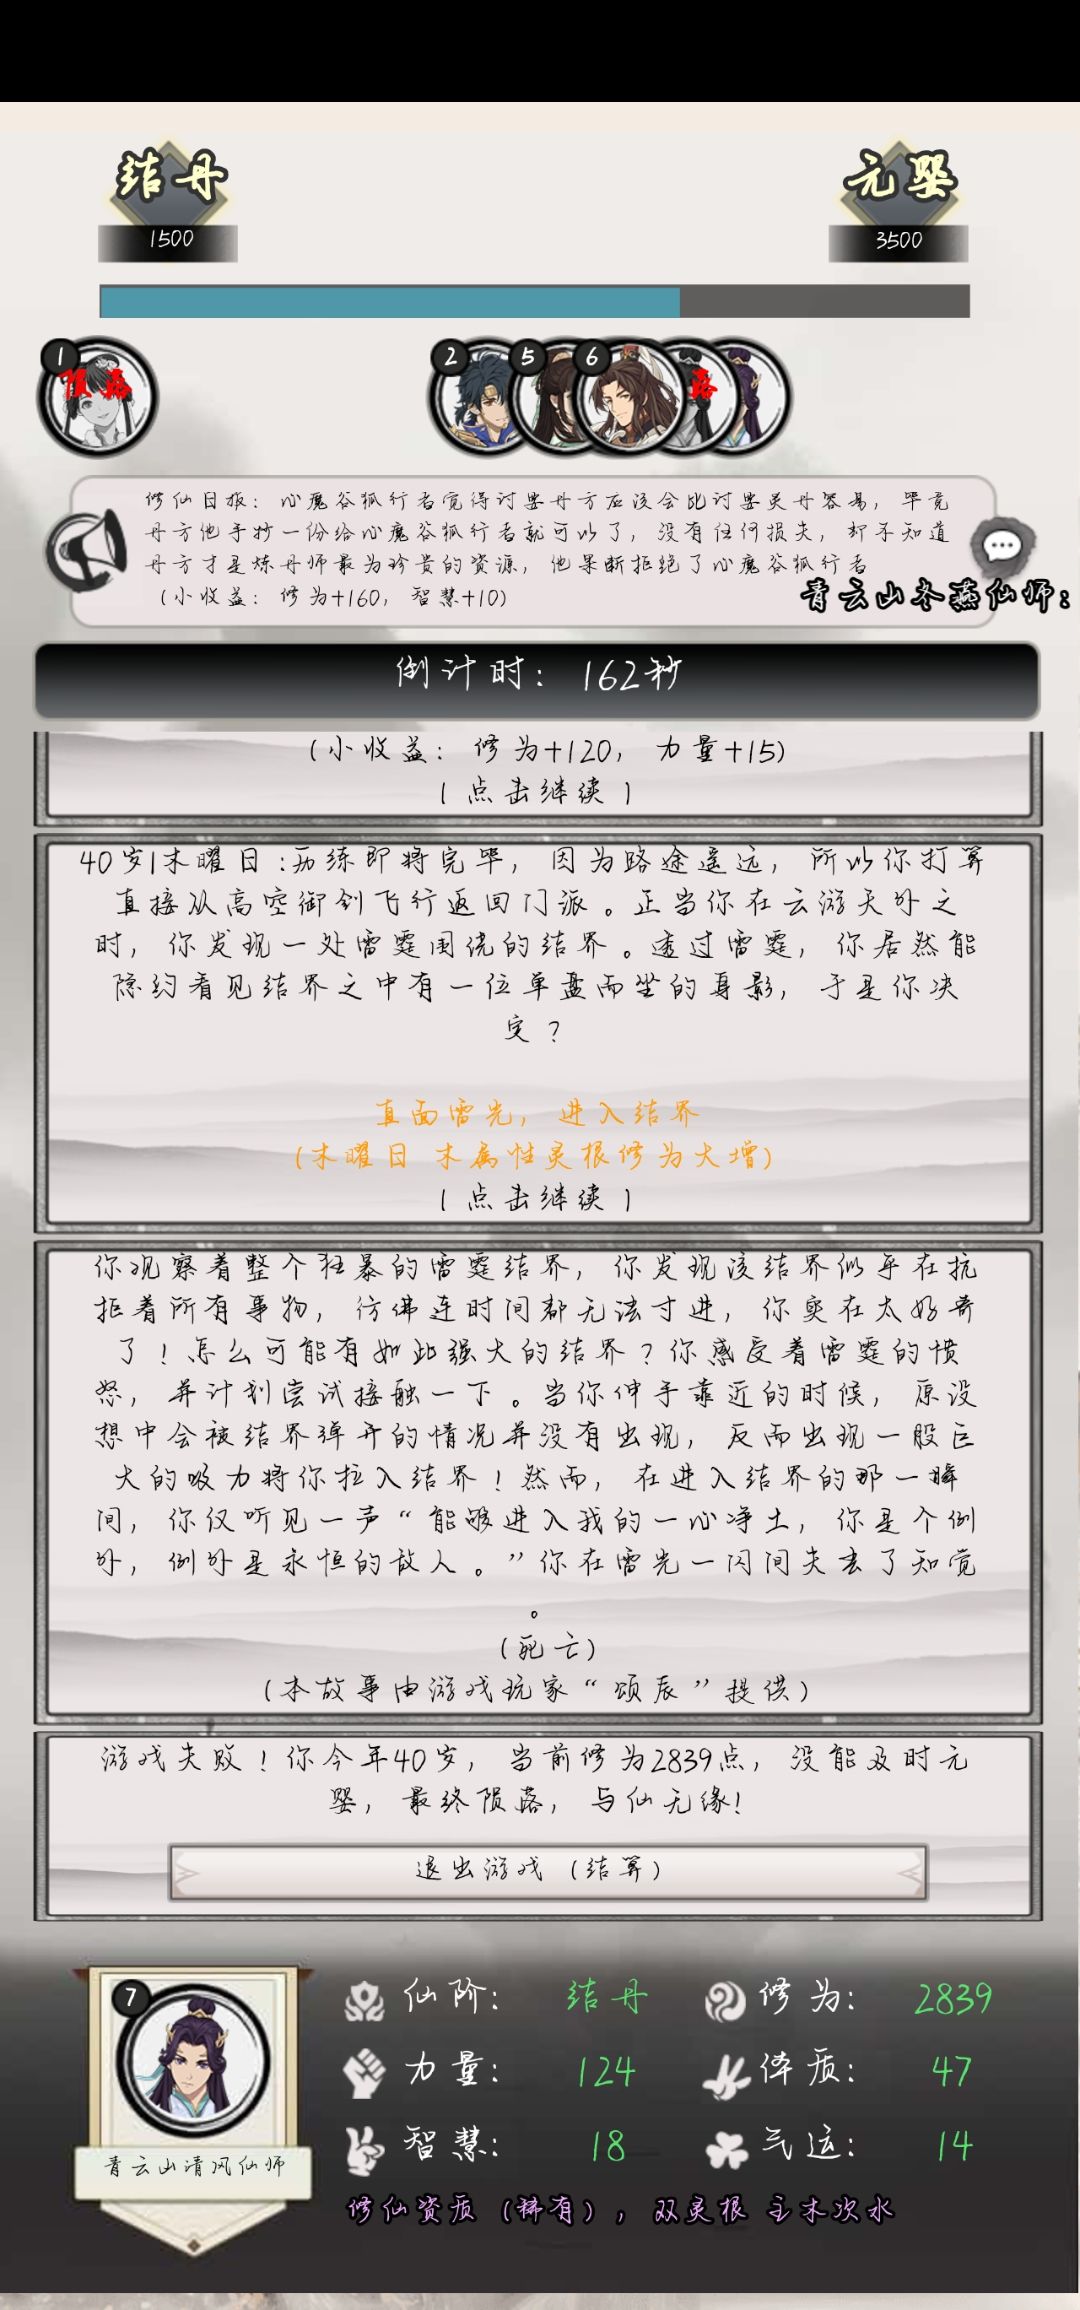 结丹
元婴
1500
3500
1
陨落
2
5
6
落
修仙日报：心魔谷孤行者觉得讨要丹方应该会比讨要灵丹容易，毕竟
丹方他手抄一份给心魔谷孤行者就可以了，没有任何损失，却不知道
丹方才是炼丹师最为珍贵的资源，他果断拒绝了心魔谷孤行者
(小收益：修为+160，智慧+10)
青云山冬燕仙师：
倒计时：162秒
(小收益：修为+120，力量+15)
[点击继续]
40岁|木曜日:历练即将完毕，因为路途遥远，所以你打算
直接从高空御剑飞行返回门派。正当你在云游天外之
时，你发现一处雷霆围绕的结界。透过雷霆，你居然能
隐约看见结界之中有一位单盘而坐的身影，于是你决
定？
直面雷光，进入结界
(木曜日 木属性灵根修为大增)
[点击继续]
你观察着整个狂暴的雷霆结界，你发现该结界似乎在抗
拒着所有事物，仿佛连时间都无法寸进，你实在太好奇
了！怎么可能有如此强大的结界？你感受着雷霆的愤
怒，并计划尝试接触一下。当你伸手靠近的时候，原没
想中会被结界弹开的情况并没有出现，反而出现一股巨
大的吸力将你拉入结界！然而，在进入结界的那一瞬
间，你仅听见一声“能够进入我的一心净土，你是个例
外，例外是永恒的敌人。”你在雷光一闪间失去了知觉
。
(死亡)
(本故事由游戏玩家“颂辰”提供)
游戏失败！你今年40岁，当前修为2839点，没能及时元
婴，最终陨落，与仙无缘!
退出游戏（结算）
7
青云山清风仙师
仙阶：结丹 修为：2839
力量：124 体质：47
智慧：18 气运：14
修仙资质（稀有），双灵根 主木次水